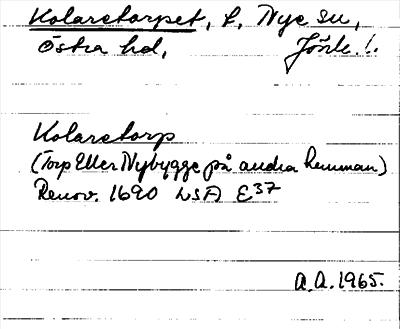 Kolaretorpet, t, Nye sn,
Östra hd, Jönk. l.
Kolaretorp
(Torp Eller Nybygge på andra hemman)
Renov. 1690 LSA E37
A.A. 1965.